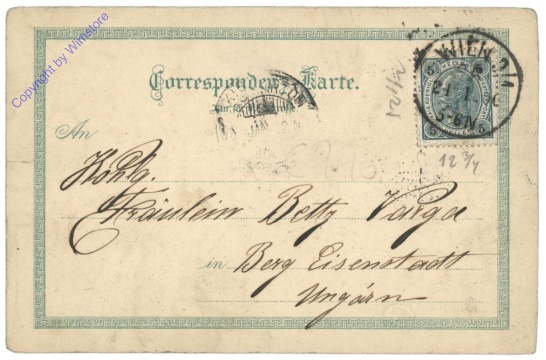 Copyright by Wimstore
Correspondenz-Karte.
WIEN 2/1
21 1
5-6N
5 5
12 3/4
An
Fräulein Betty Varga
in Berg Eisenstadt
Ungarn